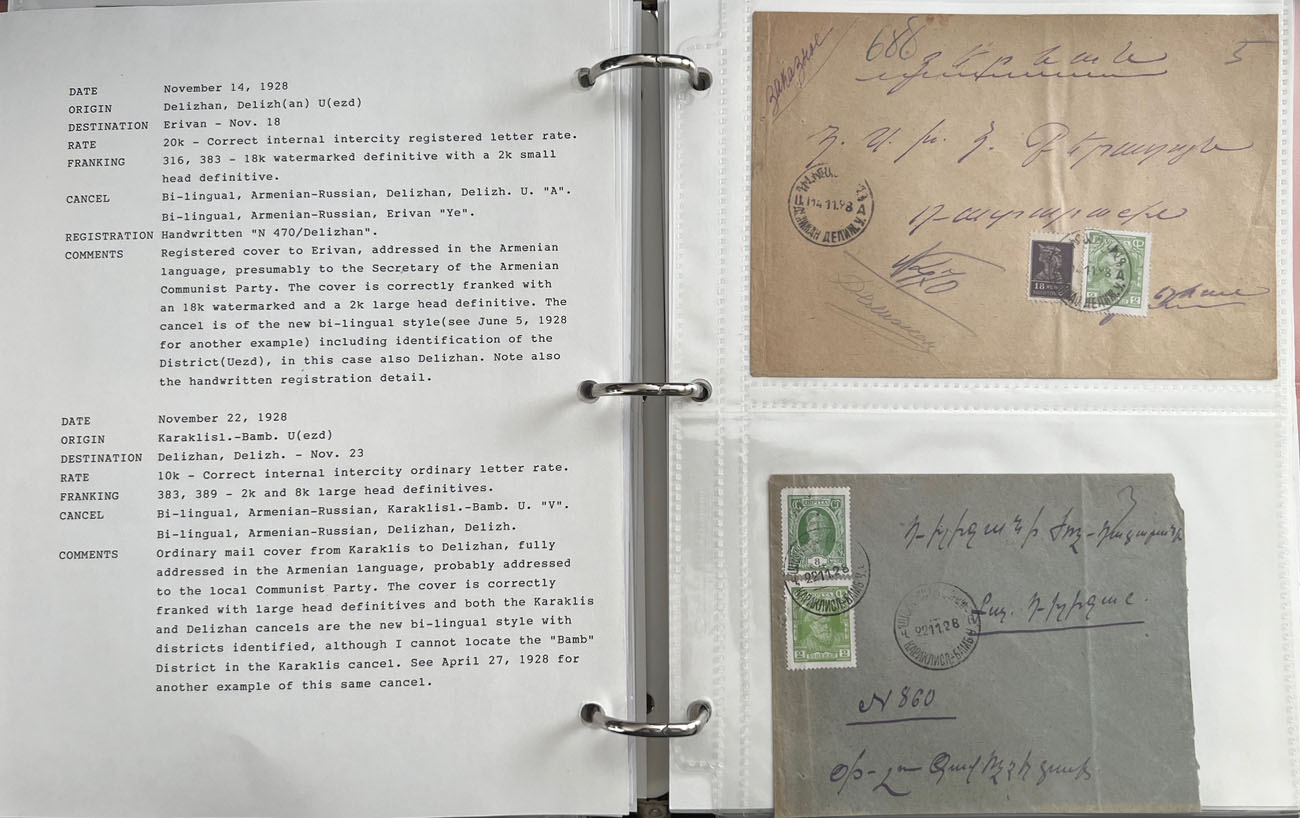 DATE November 14, 1928
ORIGIN Delizhan, Delizh(an) U(ezd)
DESTINATION Erivan - Nov. 18
RATE 20k - Correct internal intercity registered letter rate.
FRANKING 316, 383 - 18k watermarked definitive with a 2k small
head definitive.
CANCEL Bi-lingual, Armenian-Russian, Delizhan, Delizh. U. "A".
Bi-lingual, Armenian-Russian, Erivan "Ye".
REGISTRATION Handwritten "N 470/Delizhan".
COMMENTS Registered cover to Erivan, addressed in the Armenian
language, presumably to the Secretary of the Armenian
Communist Party. The cover is correctly franked with
an 18k watermarked and a 2k large head definitive. The
cancel is of the new bi-lingual style(see June 5, 1928
for another example) including identification of the
District(Uezd), in this case also Delizhan. Note also
the handwritten registration detail.
DATE November 22, 1928
ORIGIN Karaklisl.-Bamb. U(ezd)
DESTINATION Delizhan, Delizh. - Nov. 23
RATE 10k - Correct internal intercity ordinary letter rate.
FRANKING 383, 389 - 2k and 8k large head definitives.
CANCEL Bi-lingual, Armenian-Russian, Karaklisl.-Bamb. U. "V".
Bi-lingual, Armenian-Russian, Delizhan, Delizh.
COMMENTS Ordinary mail cover from Karaklis to Delizhan, fully
addressed in the Armenian language, probably addressed
to the local Communist Party. The cover is correctly
franked with large head definitives and both the Karaklis
and Delizhan cancels are the new bi-lingual style with
districts identified, although I cannot locate the "Bamb"
District in the Karaklis cancel. See April 27, 1928 for
another example of this same cancel.
заказное
686
5
14.11.28
ДЕЛИЖ.У.
18
2
ДЕЛИЖ.У.
8
22 11.28
2
22 11.28
N 860